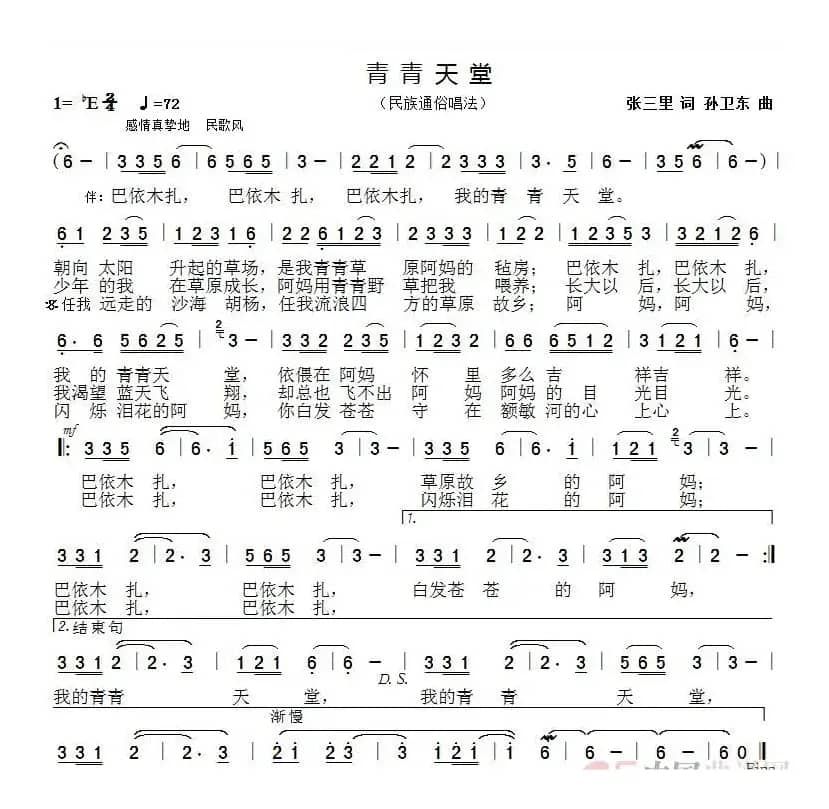 青青天堂
1= ♭E 2/4 ♩=72 （民族通俗唱法） 张三里 词 孙卫东 曲
感情真挚地 民歌风
(6 - | 3 3 5 6 | 6 5 6 5 | 3 - | 2 2 1 2 | 2 3 3 3 | 3· 5 | 6 - | 3 5 6 | 6 - ) |
伴：巴依木扎， 巴依木 扎， 巴依木扎， 我的青 青 天 堂。
6 1 2 3 5 | 1 2 3 1 6 | 2 2 6 1 2 3 | 2 3 3 3 | 1 2 2 | 1 2 3 5 3 | 3 2 1 2 6 |
朝向 太阳 升起的草场，是我青青草 原阿妈的 毡房； 巴依木 扎，巴依木 扎，
少年 的我 在草原成长，阿妈用青青野 草把我 喂养；长大以 后，长大以 后，
𝄋任我 远走的 沙海 胡杨，任我流浪四 方的草原 故乡；阿 妈，阿 妈，
6· 5 | 5 6 2 5 | 2 3 - | 3 3 2 5 | 1 2 3 2 | 6 6 6 5 1 2 | 3 1 2 1 | 6 - |
我 的 青青天 堂， 依偎在 阿妈 怀 里 多么 吉 祥吉 祥。
我渴望 蓝天飞 翔，却总也 飞不出 阿 妈 阿妈 的 目 光目 光。
闪 烁 泪花的阿 妈，你白发 苍苍 守 在 额敏 河的心 上心 上。
mf
‖: 3 3 5 6 | 6· i | 5 6 5 3 | 3 - | 3 3 5 6 | 6· i | 1 2 1 2 3 | 3 - |
巴依木 扎， 巴依木 扎， 草原故 乡 的 阿 妈；
巴依木 扎， 巴依木 扎， 闪烁泪 花 的 阿 妈；
1.
3 3 1 2 | 2· 3 | 5 6 5 3 | 3 - | 3 3 1 2 | 2· 3 | 3 1 3 2 | 2 - :‖
巴依木 扎， 巴依木 扎， 白发苍 苍 的 阿 妈，
巴依木 扎， 巴依木 扎，
2. 结束句
3 3 1 2 | 2· 3 | 1 2 1 6 | 6 - | 3 3 1 2 | 2· 3 | 5 6 5 3 | 3 - |
D. S.
我的青青 天 堂， 我的青 青 天 堂，
渐慢
3 3 1 2 | 2· 3 | 2 1 2 3 | 3· 3 | 1 2 1 1 | 6 - | 6 - | 6 - | 6 0 ‖